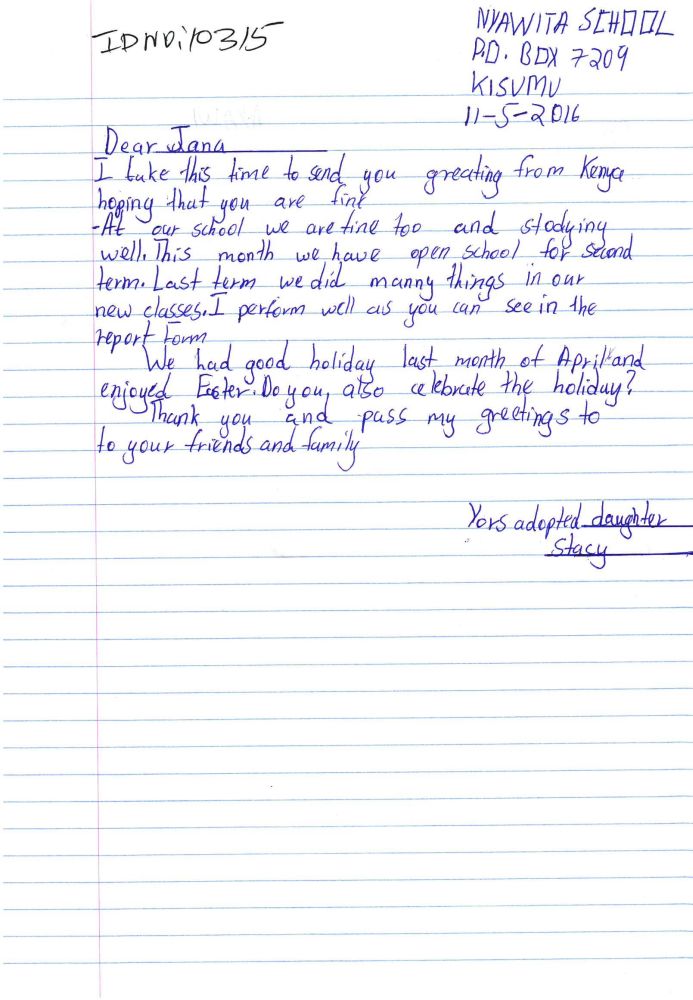 IDNO:10315
NYAWITA SCHOOL
P.O. BOX 7209
KISUMU
11-5-2016
Dear Jana
I take this time to send you greating from Kenya
hoping that you are fine
-At our school we are fine too and studying
well. This month we have open school for second
term. Last term we did manny things in our
new classes. I perform well as you can see in the
report Form
We had good holiday last month of April and
enjoyed Easter. Do you also celebrate the holiday?
Thank you and pass my greetings to
to your friends and family
Yors adopted daughter
Stacy